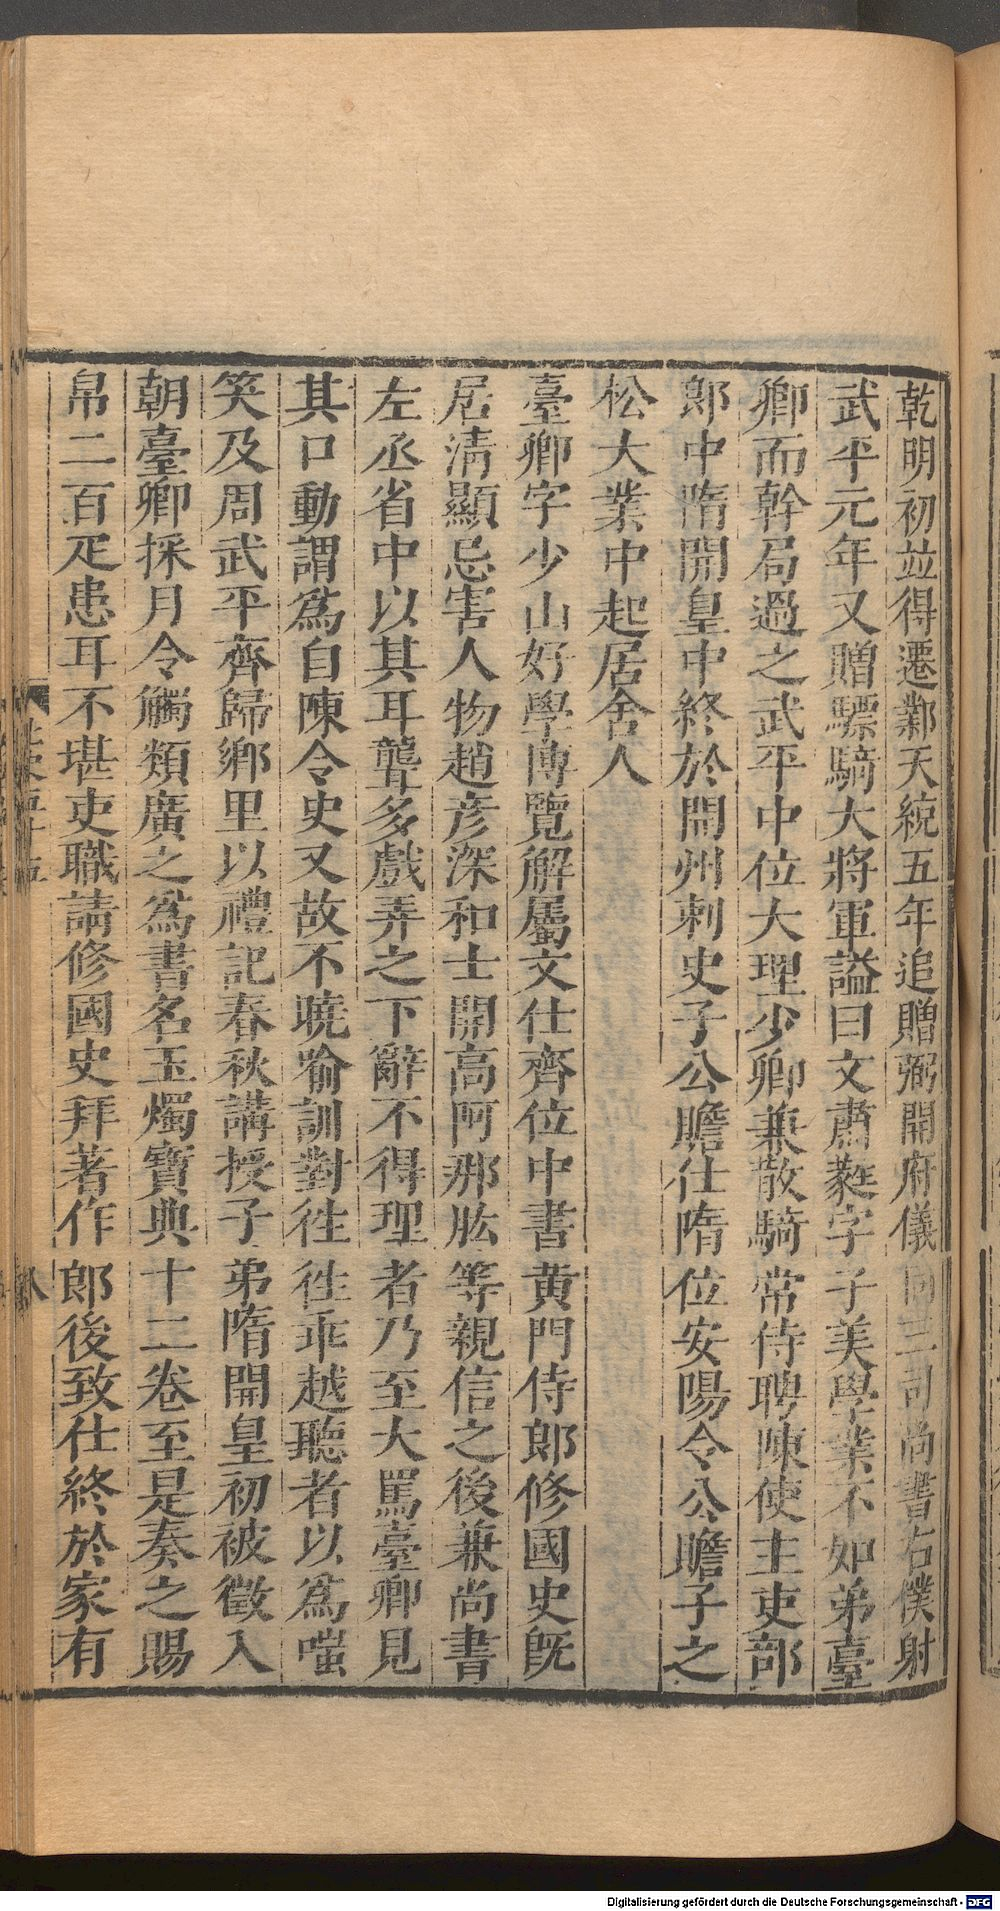 乾明初並得遷鄴天統五年追贈弼開府儀同三司尚書右僕射
武平元年又贈驃騎大將軍謚曰文肅蕤字子美學業不如弟臺
卿而幹局過之武平中位大理少卿兼散騎常侍聘陳使主吏部
郎中隋開皇中終於開州刺史子公瞻仕隋位安陽令公瞻子之
松大業中起居舍人
臺卿字少山好學博覽解屬文仕齊位中書黃門侍郎修國史既
居清顯忌害人物趙彥深和士開高阿那肱等親信之後兼尚書
左丞省中以其耳聾多戲弄之下辭不得理者乃至大罵臺卿見
其口動謂爲自陳令史又故不曉喻訓對徃徃乖越聽者以爲嗤
笑及周武平齊歸鄉里以禮記春秋講授子弟隋開皇初被徵入
朝臺卿採月令觸類廣之爲書名玉燭寶典十二卷至是奏之賜
帛二百疋患耳不堪吏職請修國史拜著作郎後致仕終於家有
Digitalisierung gefördert durch die Deutsche Forschungsgemeinschaft - DFG